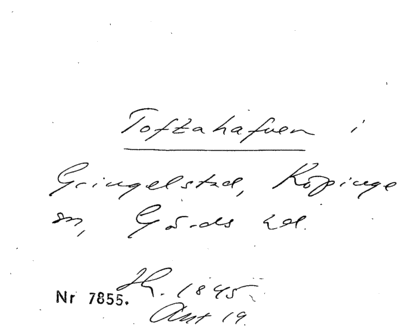 Toftahafven i
Gringelstad, Köpinge
sn, Gärds hd.
Hl. 1845.
Nr 7855.
Akt 19